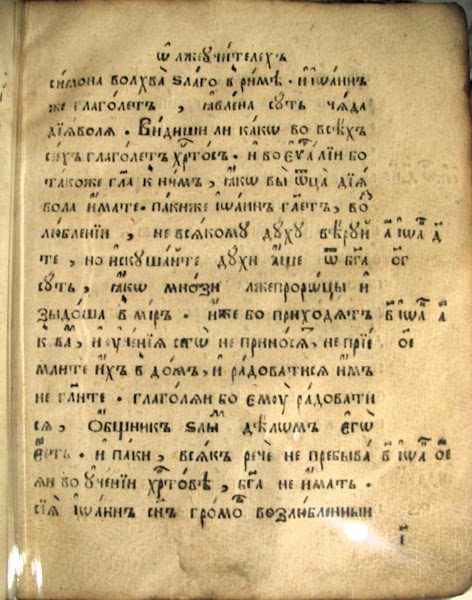 ѿ лжеучи́телехъ
си́мона волхва̀ ѕла́го в ри́мѣ · и҆ і҆ѡа́ннъ
же глаго́летъ , ꙗ҆вле́на сꙋть ча́да
дїѧ́волѧ · Ви́диши ли ка́кѡ во всѣ́хъ
си́хъ глаго́летъ хрⷭ҇то́съ · и҆ во є҆ѵⷢ҇лїи бо
та́коже гл҃а к ни́мъ , ꙗ҆́кѡ вы̀ ѿца̀ дїѧ́
вола и҆́мате · па́киже і҆ѡа́ннъ гл҃етъ , во
лю́бленїи , не всѧ́комꙋ дꙋ́хꙋ вѣ́рꙋй
те , но и҆скꙋша́йте дꙋ́хи а҆́ще ѿ бг҃а
сꙋ́ть , ꙗ҆́кѡ мно́зи лжепроро́цы и҆
зыдо́ша в ми́ръ · и҆́же бо прихо́дѧтъ
к ва́мъ , и҆ ᲂу҆че́нїѧ сегѡ̀ не прино́сѧтъ , не прїе́
млите и҆́хъ в до́мъ , и҆ ра́доватисѧ и҆̀мъ
не гл҃ите · глаго́лѧй бо є҆мꙋ̀ ра́довати
сѧ , О҆́бщникъ ѕлы́мъ дѣ́лѡмъ є҆гѡ̀
є҆́сть · и҆ па́ки , всѧ́къ рече не пребыва́
ѧй во ᲂу҆че́нїи хрⷭ҇то́вѣ , бг҃а не и҆́мать ·
сїѧ̀ і҆ѡа́ннъ сн҃ъ гро́мовъ возлю́бленныи